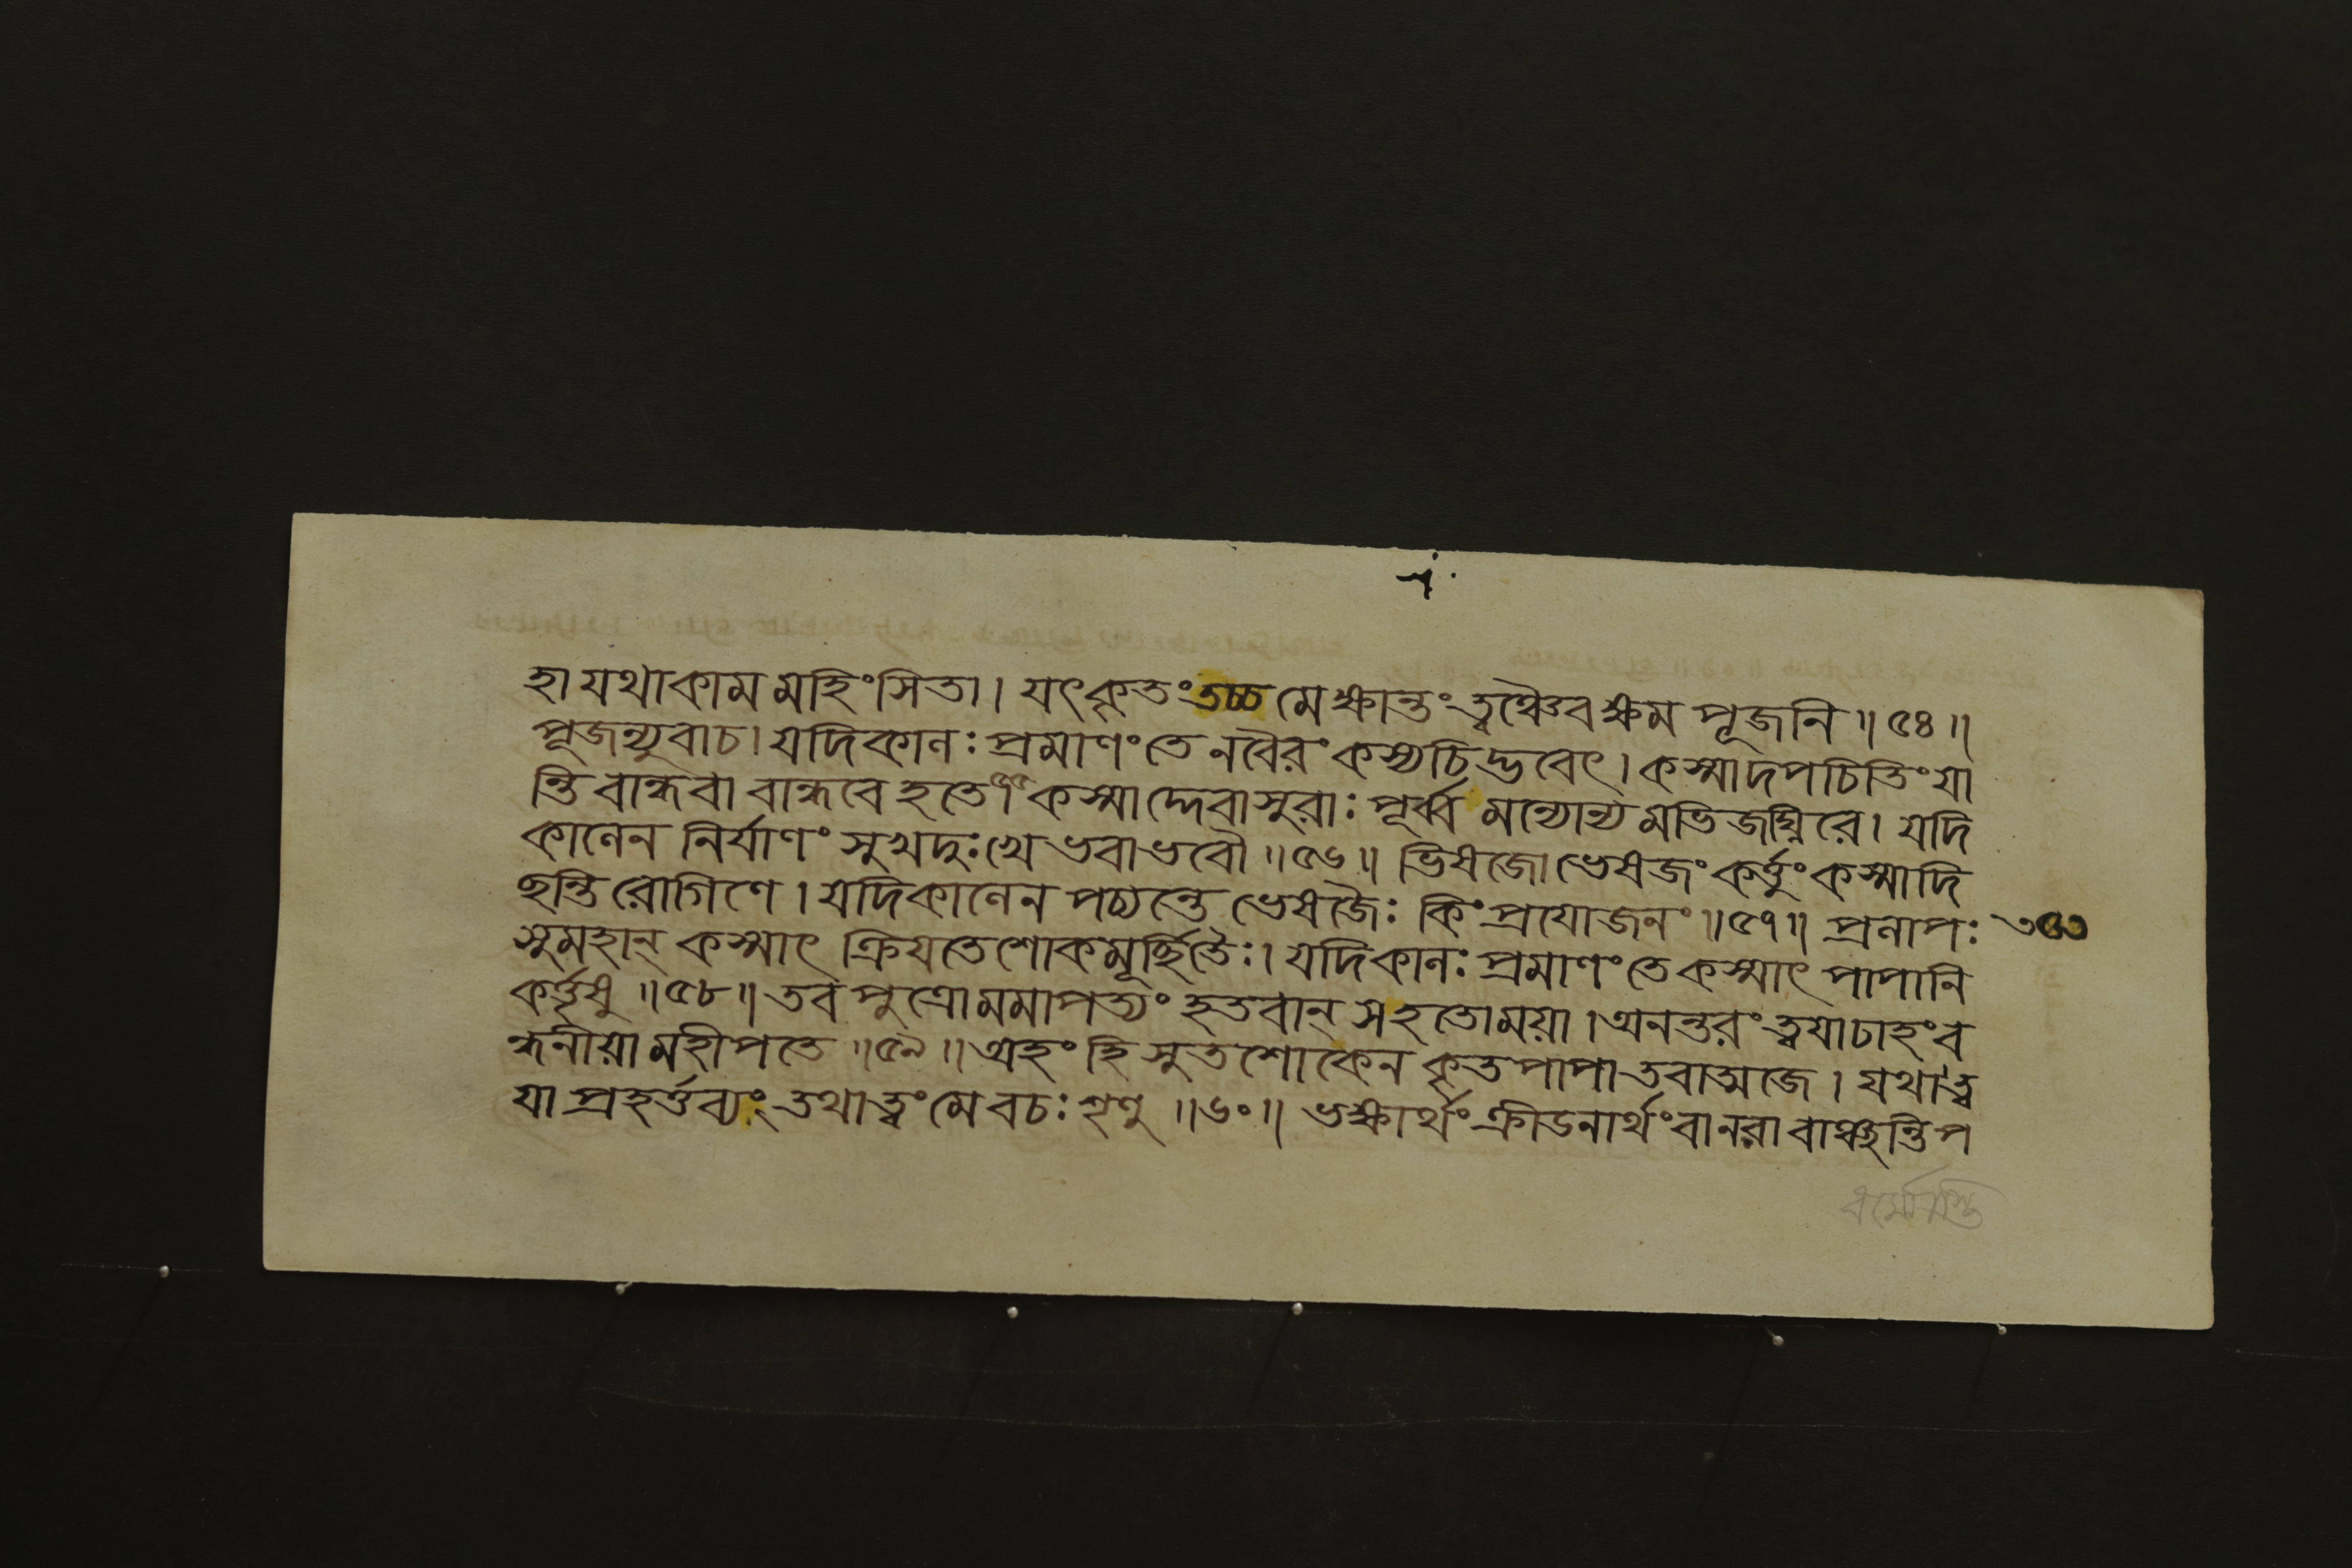 হা যথাকামমহিংসিতা। যৎকৃতং তচ্চ মে ক্ষান্তং ত্বঞ্চৈব ক্ষম পূজনি॥৫৪॥
পূজন্যুবাচ। যদি কালঃ প্রমাণং তে ন বৈরং কস্যচিদ্ভবেৎ। কস্মাদপচিতিং যা
ন্তি বান্ধবা বান্ধবে হতে॥৫৫॥ কস্মাদ্দেবাসুরাঃ পূর্ব্বমন্যোন্যমভিজঘ্নিরে। যদি
কালেন নির্যাণং সুখদুঃখে ভবাভবৌ॥৫৬॥ ভিষজো ভেষজং কর্ত্তুং কস্মাদি
ছন্তি রোগিণে। যদি কালেন পচ্যন্তে ভেষজৈঃ কিং প্রযোজনং॥৫৭॥ প্রলাপঃ
সুমহান্ কস্মাৎ ক্রিযতে শোকমূর্চ্ছিতৈঃ। যদি কালঃ প্রমাণং তে কস্মাৎ পাপানি
কর্ত্তৃষু॥৫৮॥ তব পুত্রো মমাপত্যং হতবান্ স হতো ময়া। অনন্তরং ত্বযাচাহং ব
ন্ধনীয়া মহীপতে॥৫৯॥ অহং হি সুতশোকেন কৃতপাপা তবাত্মজে। যথা ত্ব
যা প্রহর্ত্তব্যং তথা ত্বং মে বচঃ শৃণু॥৬০॥ ভক্ষার্থং ক্রীডনার্থং বা নরা বাঞ্ছন্তি প